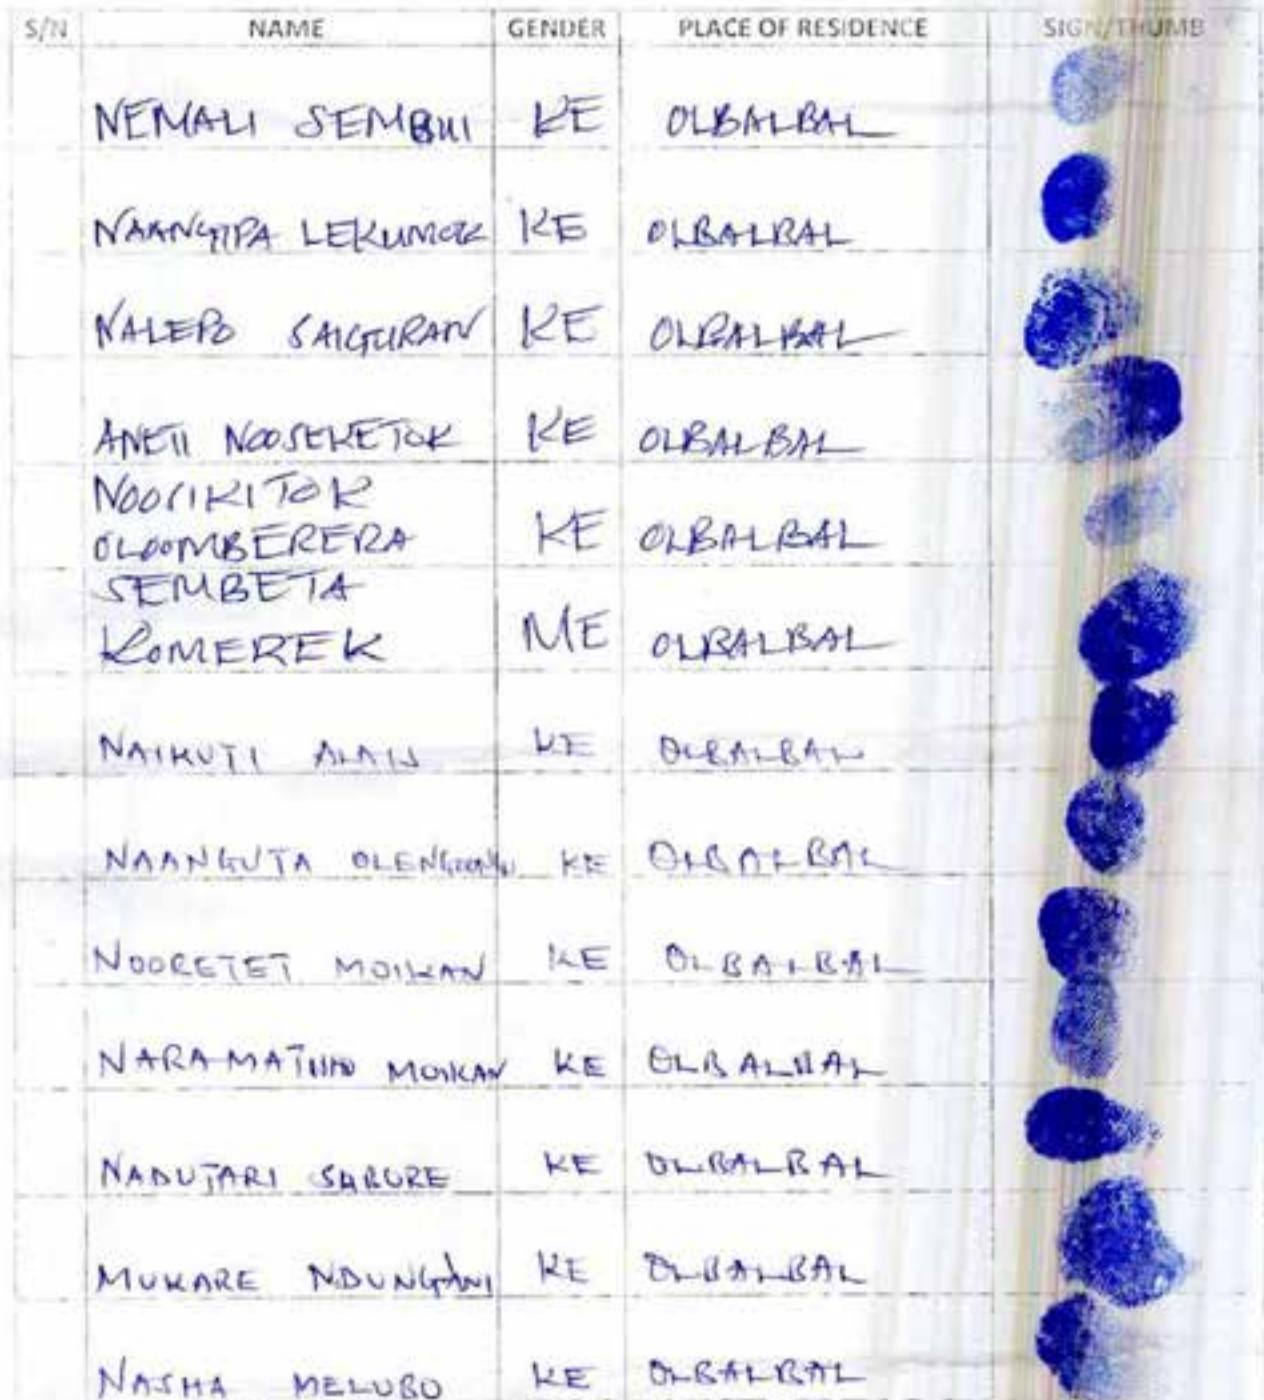 S/N NAME GENDER PLACE OF RESIDENCE SIGN/THUMB
NEMALI SEMBUI KE OLBALBAL
LEKUMOK KE OLBALBAL
NALEPO SAIGURAN KE OLBALBAL
ANETI NOOSEKETOK KE OLBALBAL
NOOSIKITOK
OLOOMBERERA KE OLBALBAL
SEMBETA
KOMEREK ME OLBALBAL
NAIKUTI ALAIS KE OLBALBAL
NAANGUTA KE OLBALBAL
NOORETET MOIKAN KE OLBALBAL
MOIKAN KE OLBALBAL
NADUTARI SABURE KE OLBALBAL
MUKARE KE OLBALBAL
NASHA MELUBO KE OLBALBAL